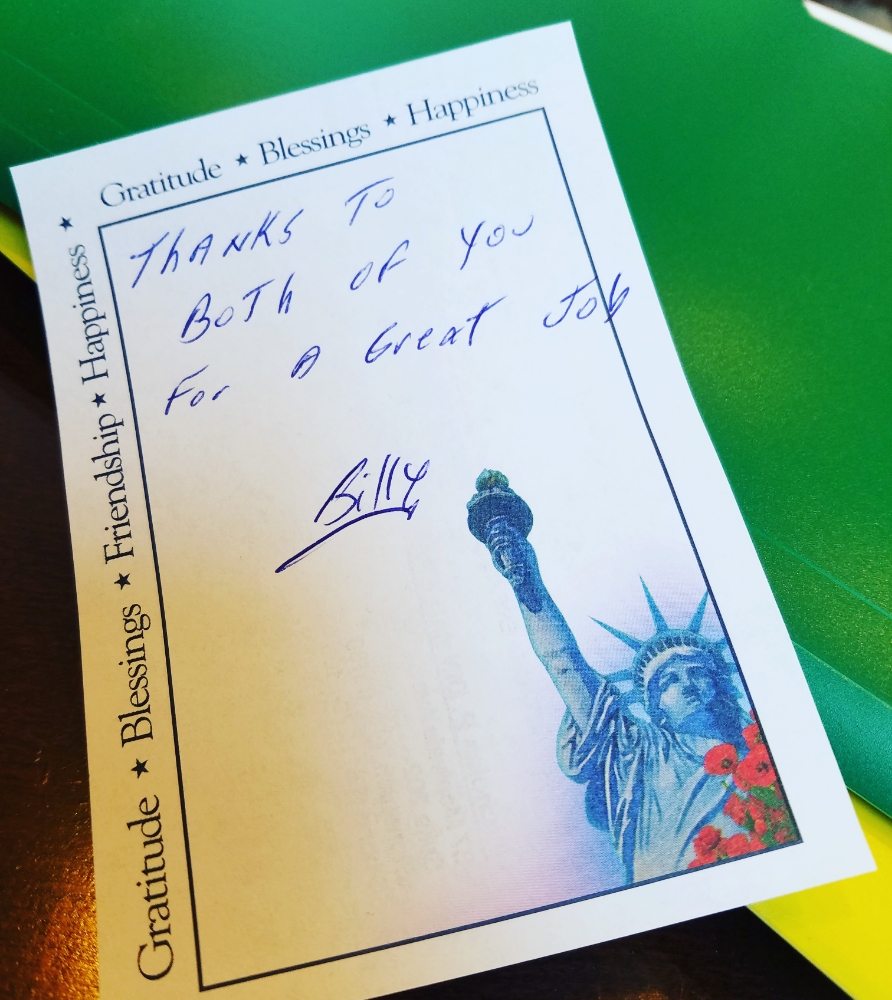 Gratitude ★ Blessings ★ Happiness
Gratitude ★ Blessings ★ Friendship ★ Happiness ★
THANKS TO
BOTH OF YOU
For A Great Job
Billy